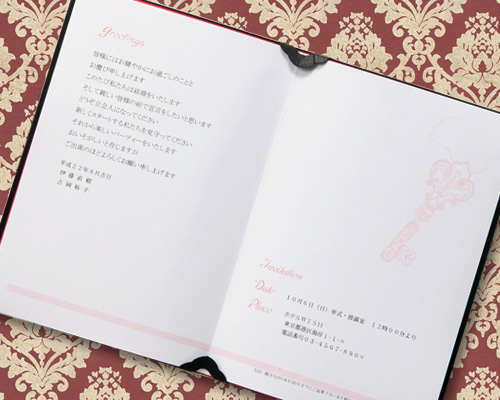 Greetings
皆様にはお健やかにお過ごしのことと
お慶び申し上げます
このたび私たちは結婚をいたします
そして親しい皆様の前で宣言をしたいと思います
どうぞ立会人になってください
新しくスタートする私たちを見守ってください
それから楽しいパーティーをいたします
おいそがしいと存じますが
ご出席のほどよろしくお願い申し上げます
平成22年8月吉日
伊藤直樹
吉岡裕子
Invitation
Date
10月6日（日）挙式・披露宴 12時00分より
Place
東京都港区海岸1-1-×
電話番号03-4567-890×